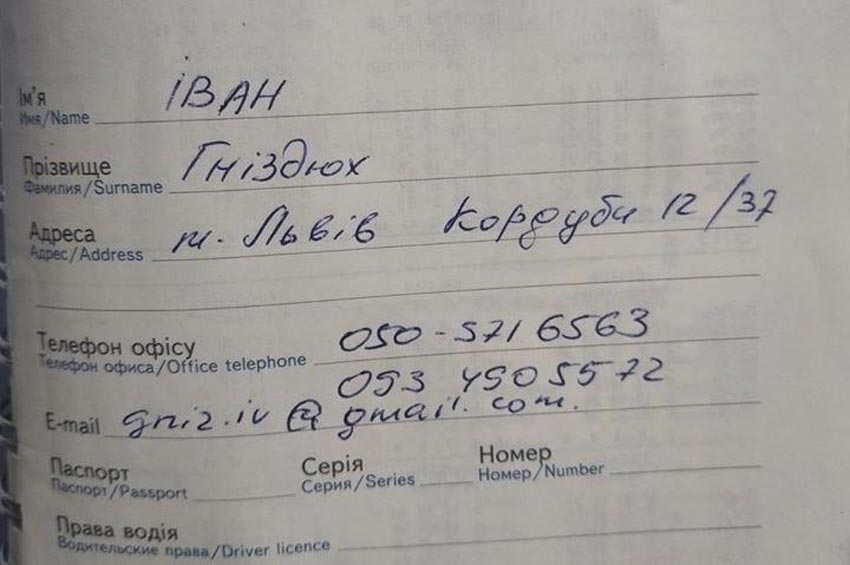 Ім'я ІВАН
Имя/Name
Прізвище Гніздюх
Фамилия/Surname
Адреса м. Львів Кордуби 12/37
Адрес/Address
Телефон офісу 050-571 6563
Телефон офиса/Office telephone
093 4505572
E-mail gniz.iv@gmail.com.
Паспорт Серія Номер
Паспорт/Passport Серия/Series Номер/Number
Права водія
Водительские права/Driver licence